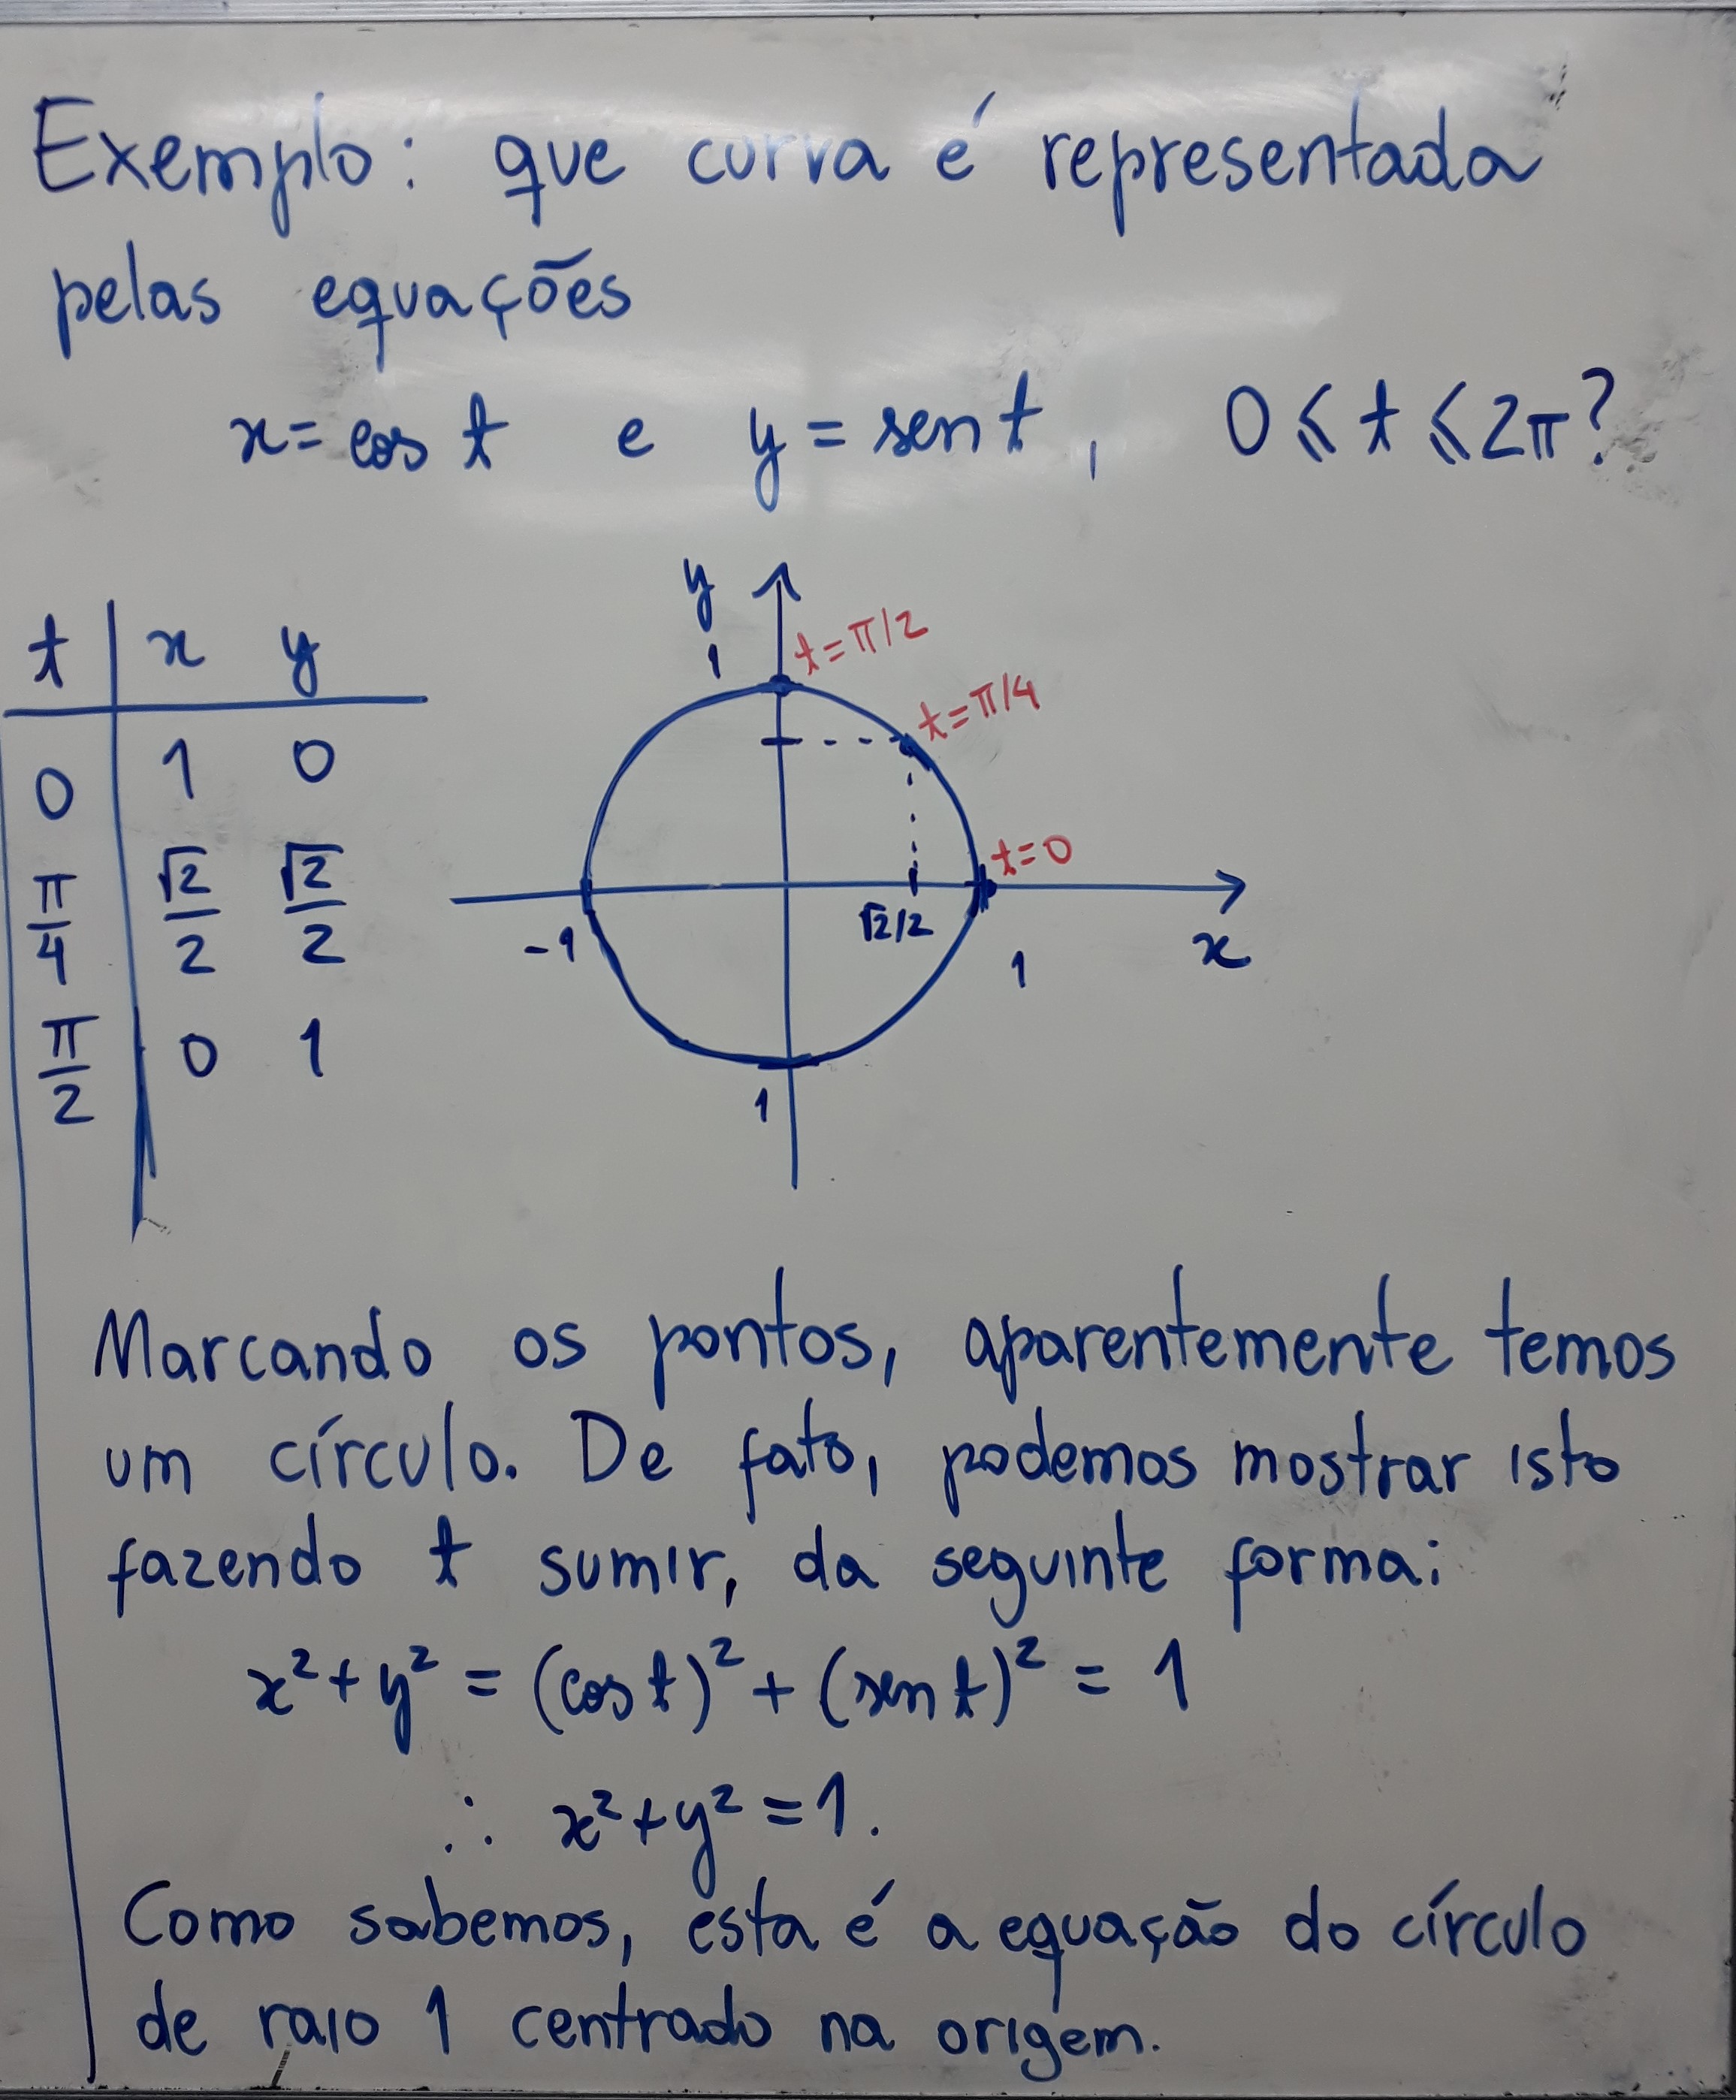 Exemplo: que curva é representada
pelas equações
x = cos t e y = sen t, 0 ⩽ t ⩽ 2π?
t x y
0 1 0
π/4 √2/2 √2/2
π/2 0 1
y
1
t=π/2
t=π/4
t=0
-1
√2/2
1
x
1
Marcando os pontos, aparentemente temos
um círculo. De fato, podemos mostrar isto
fazendo t sumir, da seguinte forma:
x² + y² = (cos t)² + (sen t)² = 1
∴ x² + y² = 1.
Como sabemos, esta é a equação do círculo
de raio 1 centrado na origem.